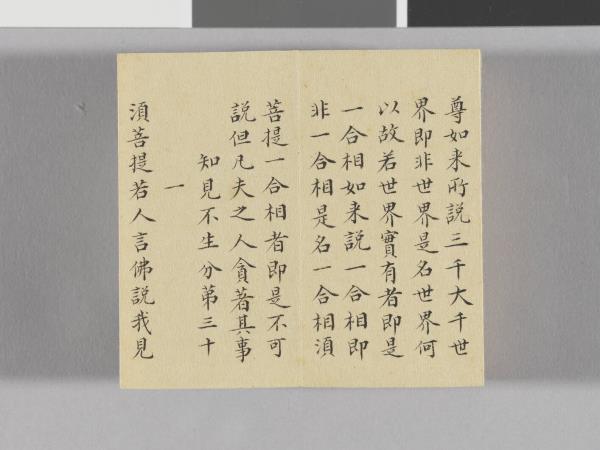 尊如来所說三千大千世
界即非世界是名世界何
以故若世界實有者即是
一合相如来說一合相即
非一合相是名一合相湏
菩提一合相者即是不可
說但凡夫之人貪著其事
知見不生分第三十
一
湏菩提若人言佛說我見